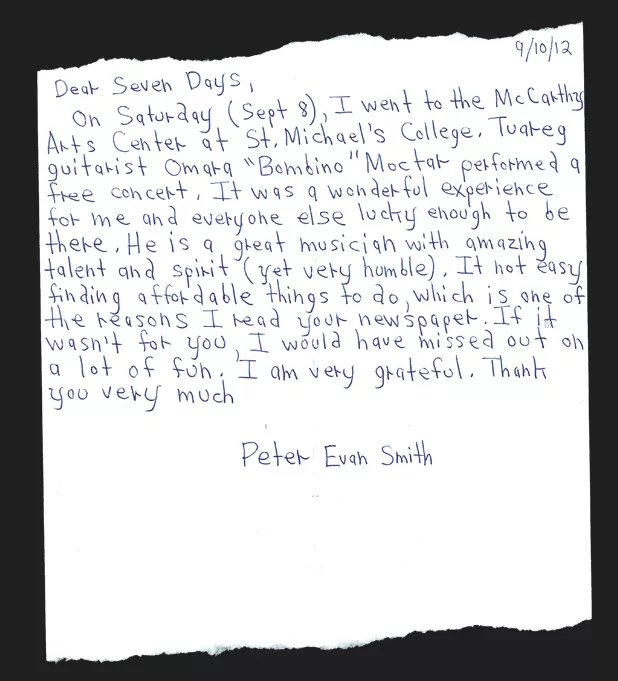 9/10/12
Dear Seven Days,
On Saturday (Sept 8), I went to the McCarthy
Arts Center at St. Michael's College. Tuareg
guitarist Omara "Bombino" Moctar performed a
free concert. It was a wonderful experience
for me and everyone else lucky enough to be
there. He is a great musician with amazing
talent and spirit (yet very humble). It not easy
finding affordable things to do, which is one of
the reasons I read your newspaper. If it
wasn't for you, I would have missed out on
a lot of fun. I am very grateful. Thank
you very much
Peter Evan Smith